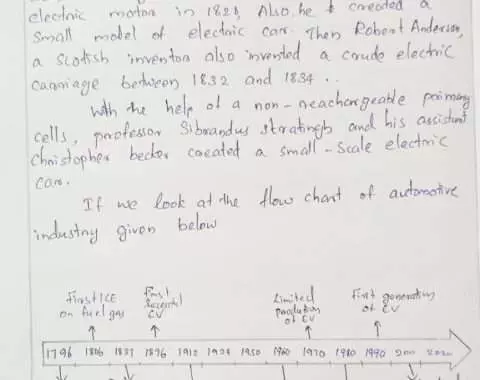 electric motor in 1828, Also, he created a
small model of electric car. Then Robert Anderson,
a Scotish inventor also invented a crude electric
carriage between 1832 and 1834 ..
With the help of a non-reachargeable primary
cells, professor Sibrandus stratingh and his assistant
christopher becker created a small-scale electric
car.
If we look at the flow chart of automotive
industry given below
First ICE
on fuel gas
First
EV
Limited
production
of EV
First generation
of EV
1796 1806 1837 1876 1912 1924 1950 1960 1970 1980 1990 2011 2020